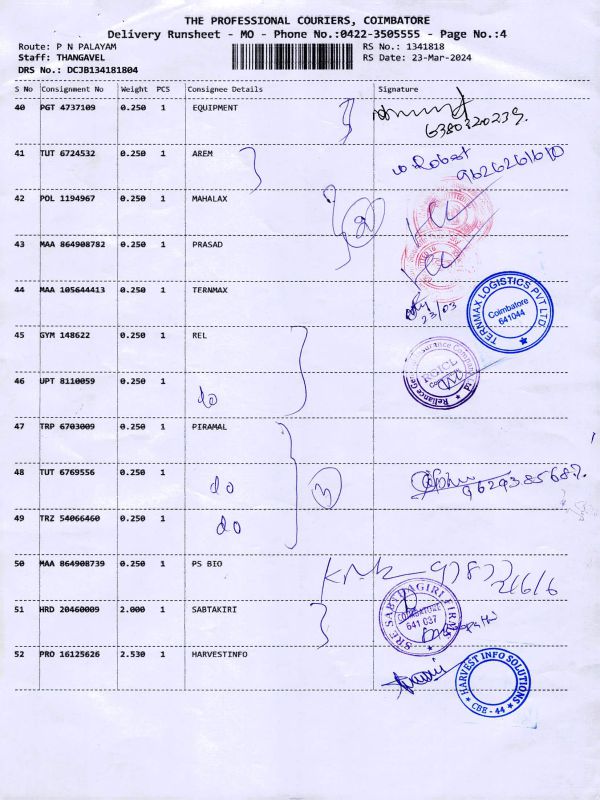 THE PROFESSIONAL COURIERS, COIMBATORE
Delivery Runsheet - MO - Phone No.:0422-3505555 - Page No.:4
Route: P N PALAYAM
RS No.: 1341818
Staff: THANGAVEL
RS Date: 23-Mar-2024
DRS No.: DCJB134181804
S No Consignment No Weight PCS Consignee Details Signature
40 PGT 4737109 0.250 1 EQUIPMENT
41 TUT 6724532 0.250 1 AREM
Robert
9626261610
42 POL 1194967 0.250 1 MAHALAX
2
43 MAA 864908782 0.250 1 PRASAD
44 MAA 105644413 0.250 1 TERNMAX
23/03
TERNMAX LOGISTICS PVT LTD
Coimbatore
641044
45 GYM 148622 0.250 1 REL
46 UPT 8110059 0.250 1
do
47 TRP 6703009 0.250 1 PIRAMAL
48 TUT 6769556 0.250 1
do
3
49 TRZ 54066460 0.250 1
do
50 MAA 864908739 0.250 1 PS BIO
51 HRD 20460009 2.000 1 SABTAKIRI
SRE SABTHAGIRI FIRMS
COIMBATORE
641 037
52 PRO 16125626 2.530 1 HARVESTINFO
HARVEST INFO SOLUTIONS
CBE - 44